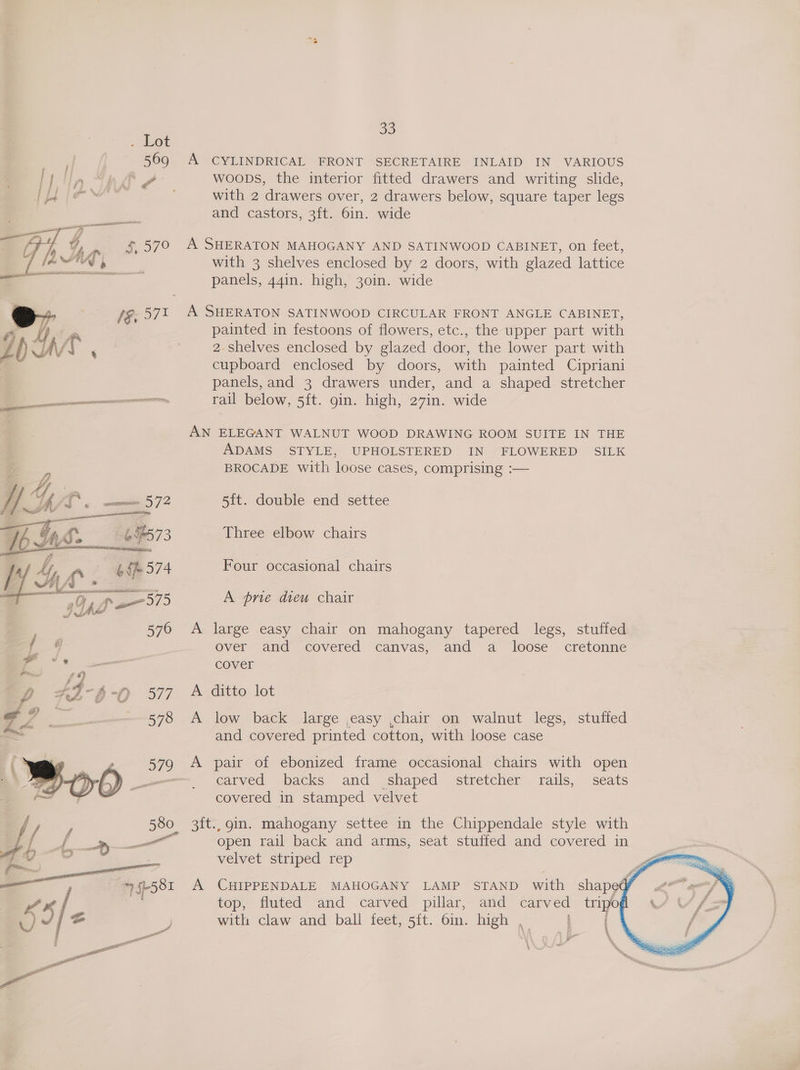 33
Lot
569 A CYLINDRICAL FRONT SECRETAIRE INLAID IN VARIOUS
WOODS, the interior fitted drawers and writing slide,
with 2 drawers over, 2 drawers below, square taper legs
and castors, 3ft. 6in. wide
570 A SHERATON MAHOGANY AND SATINWOOD CABINET, on feet,
with 3 shelves enclosed by 2 doors, with glazed lattice
panels, 44in. high, 30in. wide
571 A SHERATON SATINWOOD CIRCULAR FRONT ANGLE CABINET,
painted in festoons of flowers, etc., the upper part with
2 shelves enclosed by glazed door, the lower part with
cupboard enclosed by doors, with painted Cipriani
panels, and 3 drawers under, and a shaped stretcher
rail below, 5ft. 9in. high, 27in. wide
AN ELEGANT WALNUT WOOD DRAWING ROOM SUITE IN THE
ADAMS STYLE, UPHOLSTERED IN FLOWERED SILK
BROCADE with loose cases, comprising :—
572 5ft. double end settee
573 Three elbow chairs
574 Four occasional chairs
575 A prie dieu chair
576 A large easy chair on mahogany tapered legs, stuffed
over and covered canvas, and a loose cretonne
cover
577 A ditto lot
578 A low back large easy chair on walnut legs, stuffed
and covered printed cotton, with loose case
579 A pair of ebonized frame occasional chairs with open
carved backs and shaped stretcher rails, seats
covered in stamped velvet
580 3ft. 9in. mahogany settee in the Chippendale style with
open rail back and arms, seat stuffed and covered in
velvet striped rep
581 A CHIPPENDALE MAHOGANY LAMP STAND with shaped
top, fluted and carved pillar, and carved tripod
with claw and ball feet, 5ft. 6in. high